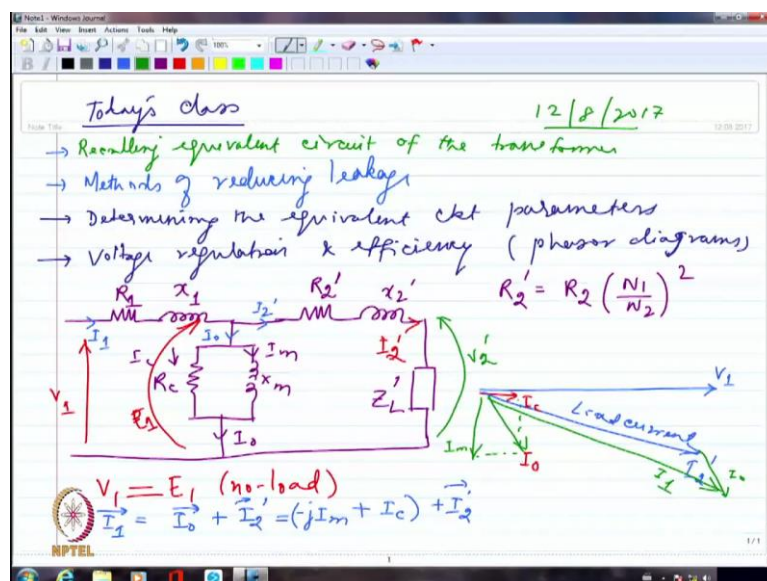 Note1 - Windows Journal
File Edit View Insert Actions Tools Help
100%
B I
Today's class
12/8/2017
Note Title
12-08-2017
→ Recalling equivalent circuit of the transformer
→ Methods of reducing leakage
→ Determining the equivalent ckt parameters
→ Voltage regulation & efficiency (phasor diagrams)
R1 x1 R2' x2' R2' = R2 (N1/N2)^2
I1 I0 I2' I2' V2'
I Rc Im xm ZL'
V1 E1 I0
V1
Ic
Load current
Im I0 I1 I2' I0
V1 = E1 (no-load)
I1 = I0 + I2' = (-jIm + Ic) + I2'
NPTEL
1/1
1